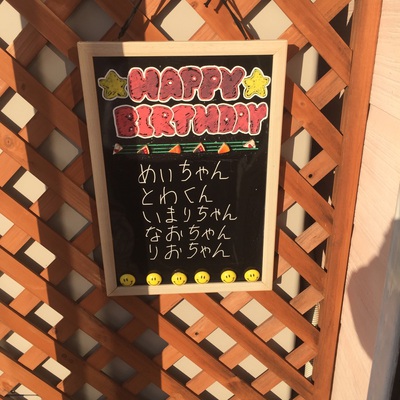 HAPPY
BIRTHDAY
めいちゃん
とわくん
いまりちゃん
なおちゃん
りおちゃん